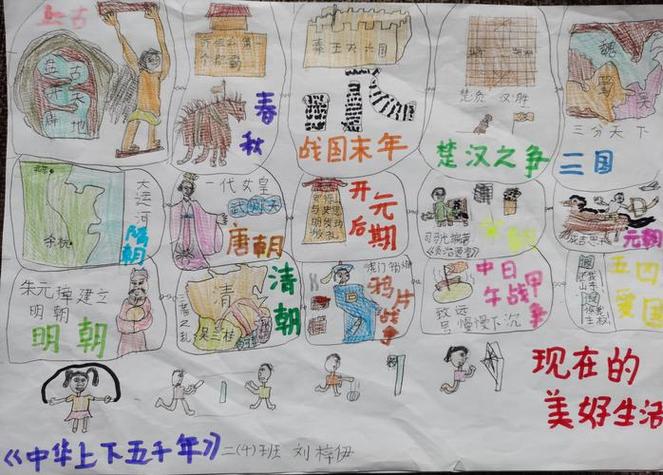 盘古
盘古
开天
辟地
春秋
秦王灭六国
战国末年
楚河 汉界
楚汉之争
魏
蜀
三分天下
三国
大运河
余杭
隋朝
一代女皇
武则天
唐朝
开元
后期
元朝
朱元璋建立
明朝
明朝
清
吴三桂
清朝
虎门销烟
鸦片战争
中日
甲午战争
致远号
慢慢下沉
五四
爱国
现在的
美好生活
《中华上下五千年》
二(4)班 刘梓伊